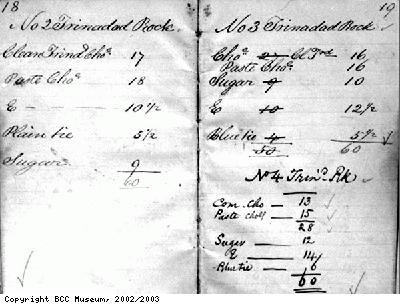 18
No 2 Trinadad Rock
Clean Trind Cho. 17
Paste Cho. 18
E — 10 1/2
Plain tie 5 1/2
Sugar 9
60
19
No 3 Trinadad Rock
Cho. 16
Paste Cho. 16
Sugar 9 10
E 10 12 1/2
Blue tie 4 5 1/2
50 60
No 4 Trin. Rk
Com. Cho — 13
Paste choll — 15
28
Suger — 12
E — 14
Blue tie — 6
60
Copyright BCC Museum, 2002/2003